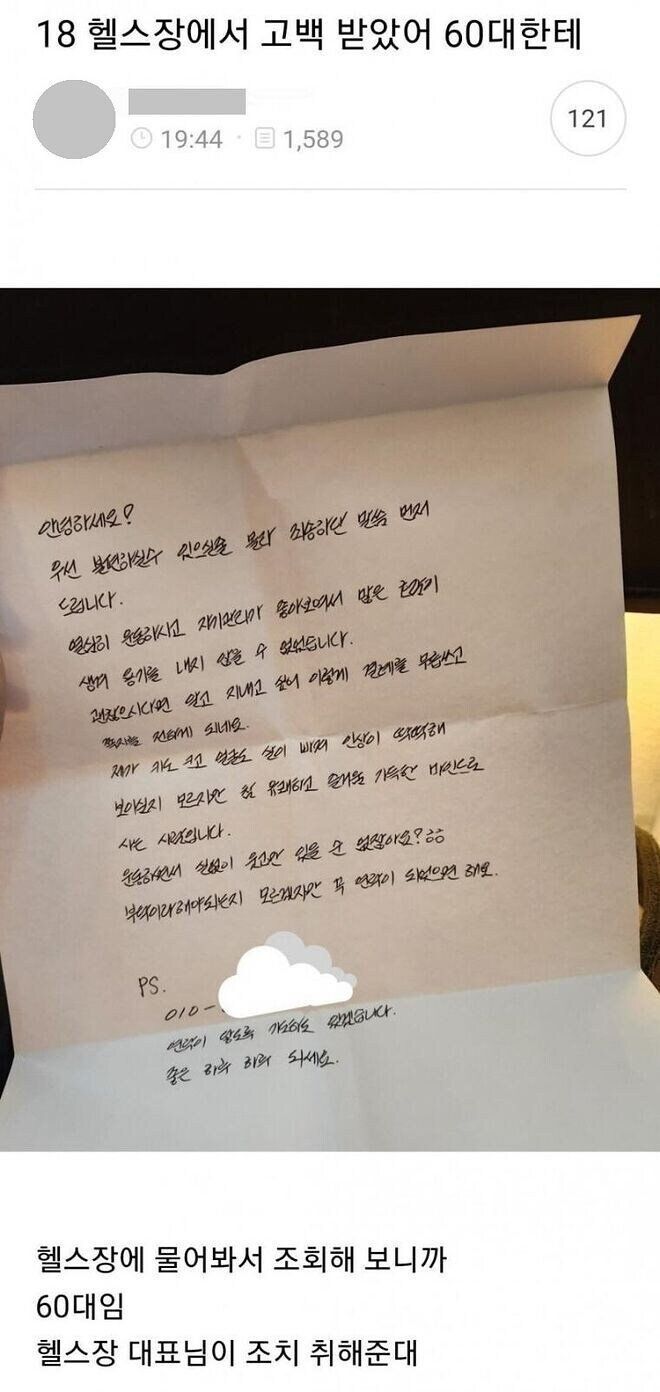 18 헬스장에서 고백 받았어 60대한테
19:44 · 1,589
121
안녕하세요?
우선 불편하실수 있으실줄 몰라 죄송하단 말씀 먼저
드립니다.
열심히 운동하시고 자기관리가 좋아보여서 많은 호감이
생겨 용기를 내지 않을 수 없었습니다.
괜찮으시다면 알고 지내고 싶어 이렇게 결례를 무릅쓰고
쪽지를 전하게 되네요.
제가 키도 크고 얼굴도 살이 빠져 인상이 딱딱해
보이실지 모르지만 참 유쾌하고 즐거움 가득한 마인드로
사는 사람입니다.
운동하면서 실없이 웃고만 있을 순 없잖아요?
부탁이라해야되는지 모르겠지만 꼭 연락이 되었으면 해요.
PS.
010-
연락이 없도록 기도하고 있겠습니다.
좋은 하루 하루 되세요.
헬스장에 물어봐서 조회해 보니까
60대임
헬스장 대표님이 조치 취해준대